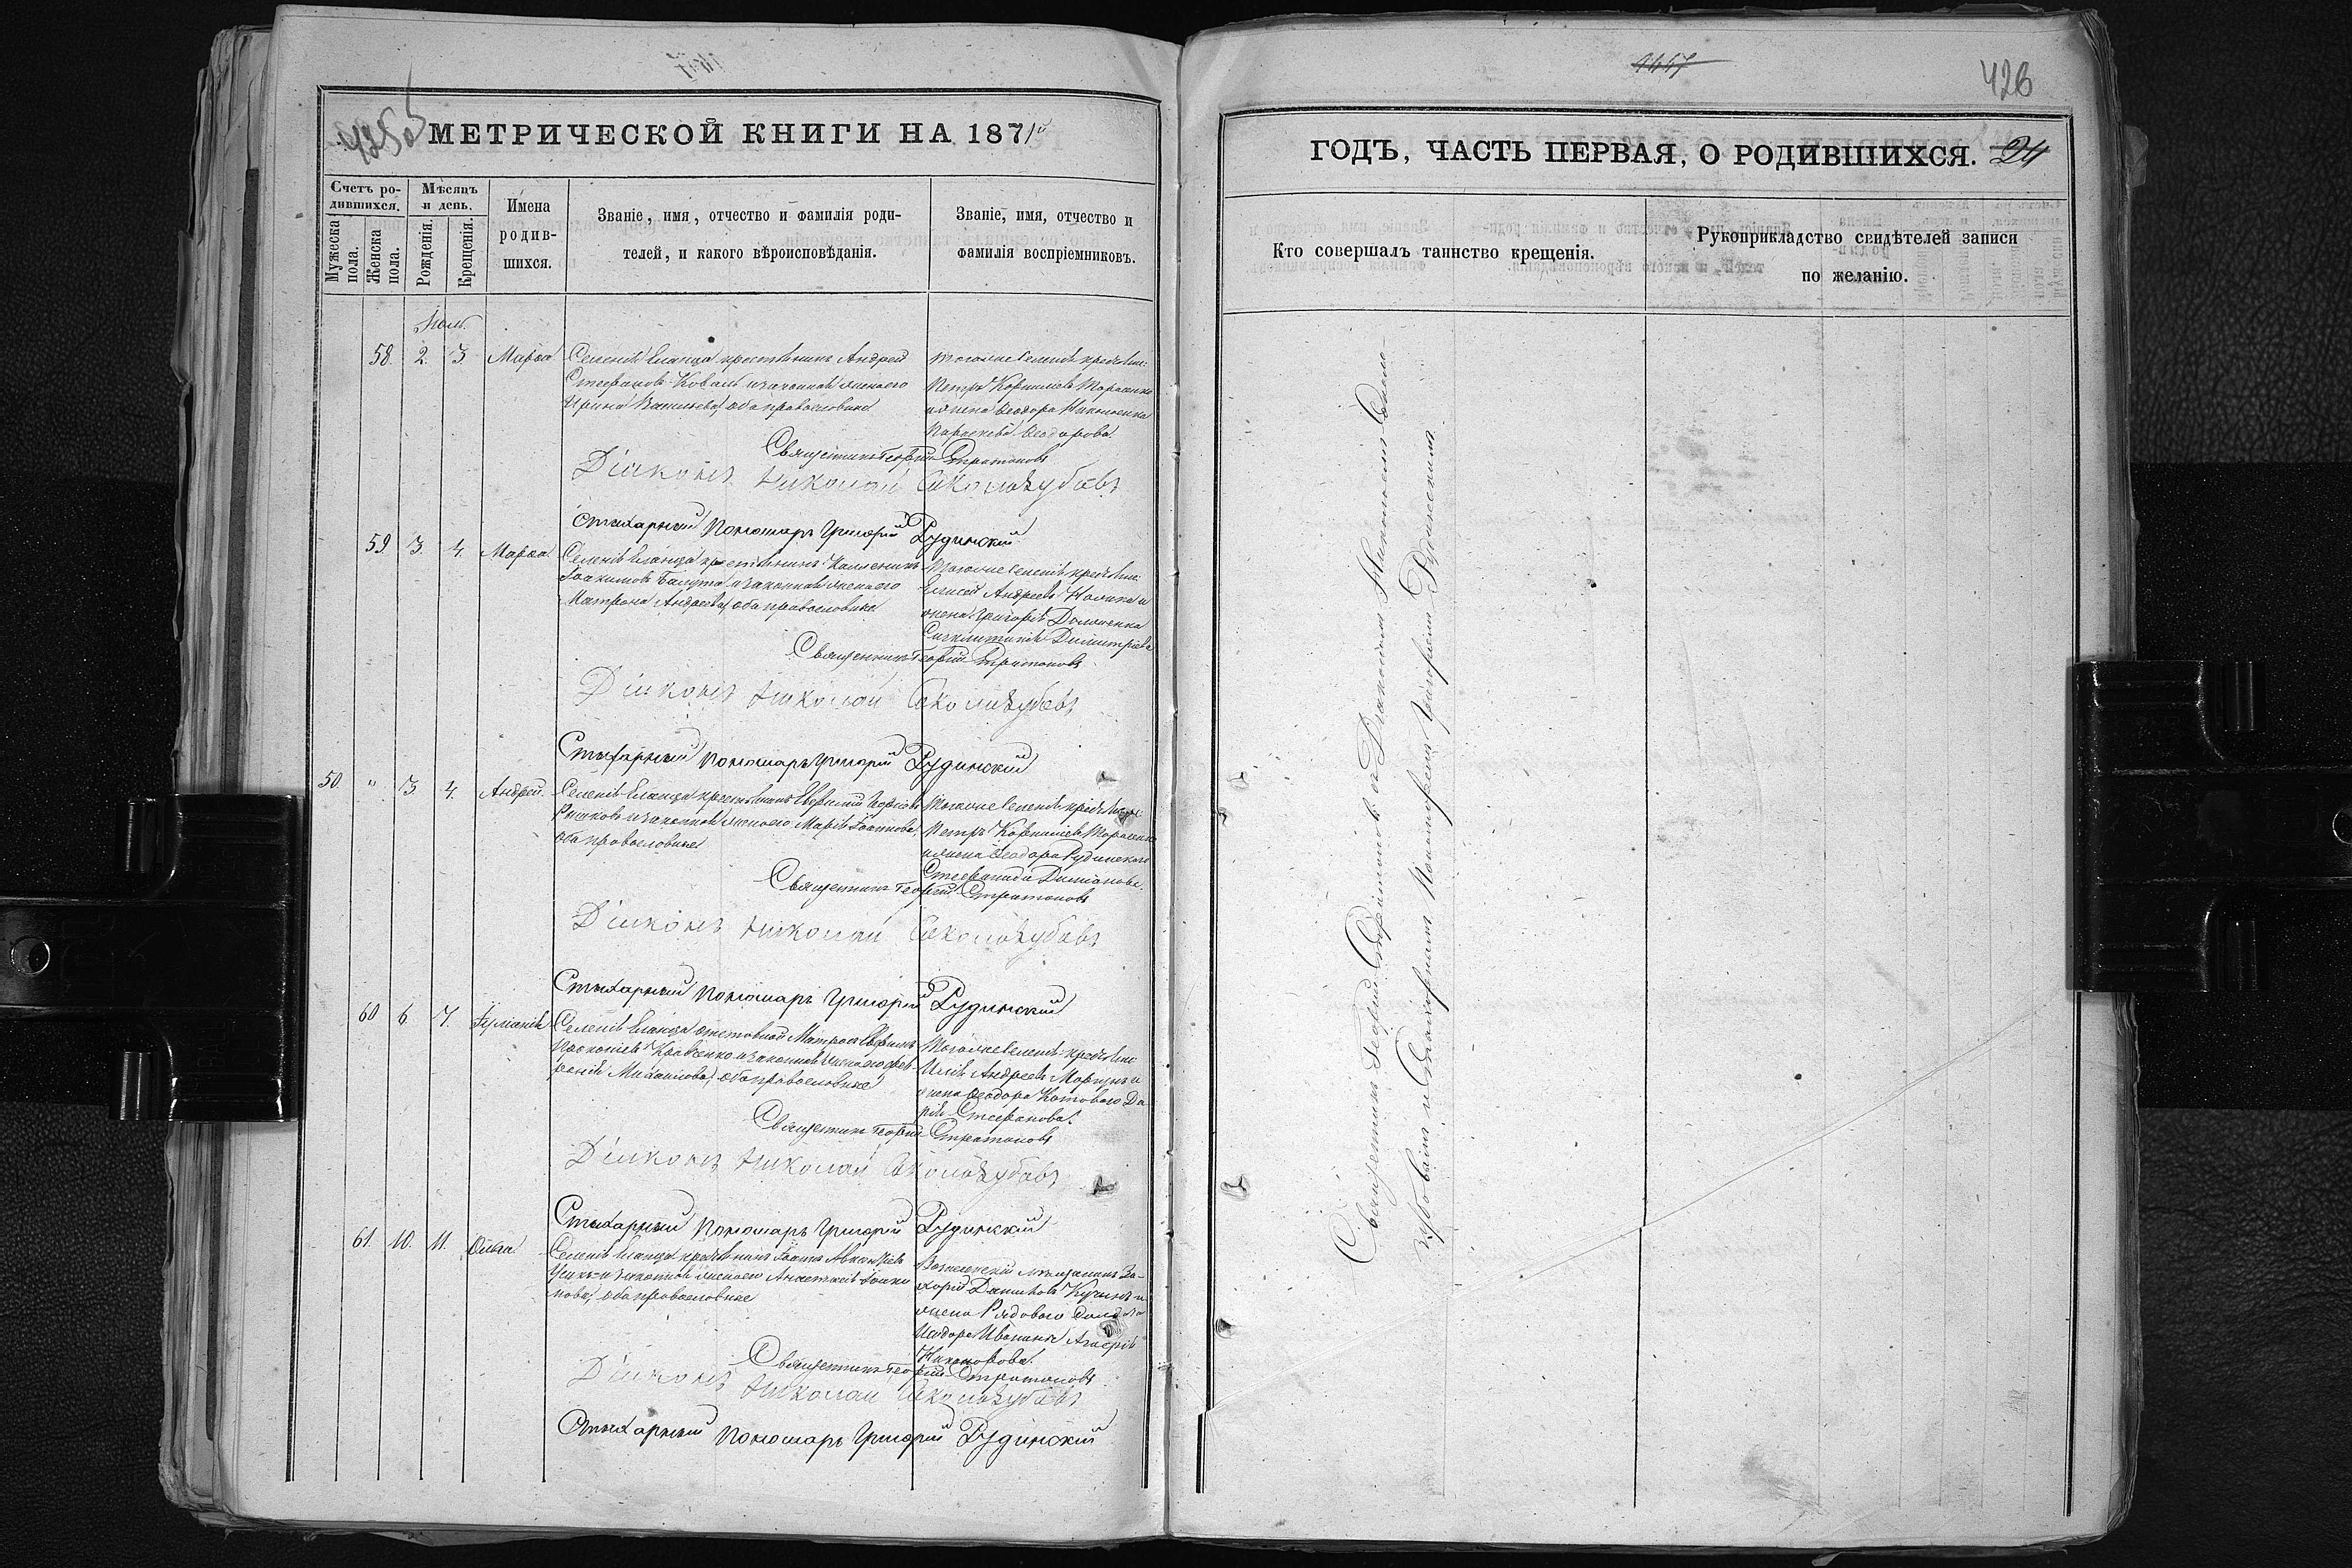 425об
МЕТРИЧЕСКОЙ КНИГИ НА 1871й
Счетъ ро-
дившихся.
Мужеска пола.
Женска пола.
Мѣсяцъ
и день.
Рожденія.
Крещенія.
Имена
родив-
шихся.
Званіе, имя, отчество и фамилія роди-
телей, и какого вѣроисповѣданія.
Званіе, имя, отчество и
фамилія воспріемниковъ.
58. 2. 3. Марѳа
Селенія Еланца крестьянинъ Андрей
Стефановъ Коваль и законная жена его
Ирина Васильева, оба православные
тогоже селенія крестьян:
Петръ Корниліевъ Тарасенко
и жена Ѳеодора Николаенка
Параскева Ѳеодорова.
Священникъ Георгій Стратоновъ
Діаконъ Николай
Стихарный Пономарь Григорій Рудинскій
59. 3. 4. Марѳа.
Селенія Еланца крестьянинъ
Іоакимовъ и законная жена его
Матрона Андреева, оба православные
Тогоже селенія крестьян:
Елисей Андреевъ и
жена Григорія
Синклитикія Димитріева
Священникъ Георгій Стратоновъ
Діаконъ Николай
Стихарный Пономарь Григорій Рудинскій
50. " 3. 4. Андрей.
Селенія Еланца крестьянинъ Евфимій
и законная жена его Марія Іоаннова,
оба православные
Тогоже селенія крестьян:
Петръ Корниліевъ Тарасенко
и жена Ѳеодора Рудинскаго
Стефанида Даміанова.
Священникъ Георгій Стратоновъ
Діаконъ Николай
Стихарный Пономарь Григорій Рудинскій
60 6. 7. Іуліанія
Селенія Еланца отставной Матросъ Евфимъ
Прокопіевъ Кравченко и законная жена его Евф-
Михаилова, оба православные
Тогоже селенія крестьян:
Илія Андреевъ и
жена Ѳеодора Котоваго Да-
рія Стефанова.
Священникъ Георгій Стратоновъ
Діаконъ Николай
Стихарный Пономарь Григорій Рудинскій
61. 10. 11. Ольга
Селенія Еланца крестьянинъ Іоаннъ
и законная жена его Анастасія Іоанно-
нова, оба православные
Вознесенскій мѣщанинъ За-
харій Даниловъ и
жена Рядоваго
Исидора Агаѳія
Никанорова.
Священникъ Георгій Стратоновъ
Діаконъ Николай
Стихарный Пономарь Григорій Рудинскій
1447
426
ГОДЪ, ЧАСТЬ ПЕРВАЯ, О РОДИВШИХСЯ. 24
Кто совершалъ таинство крещенія.
Рукоприкладство свидѣтелей записи
по желанію.
Священникъ Георгій Стратоновъ съ Діакономъ Николаемъ
и Стихарнымъ Пономаремъ Григоріемъ Рудинскимъ